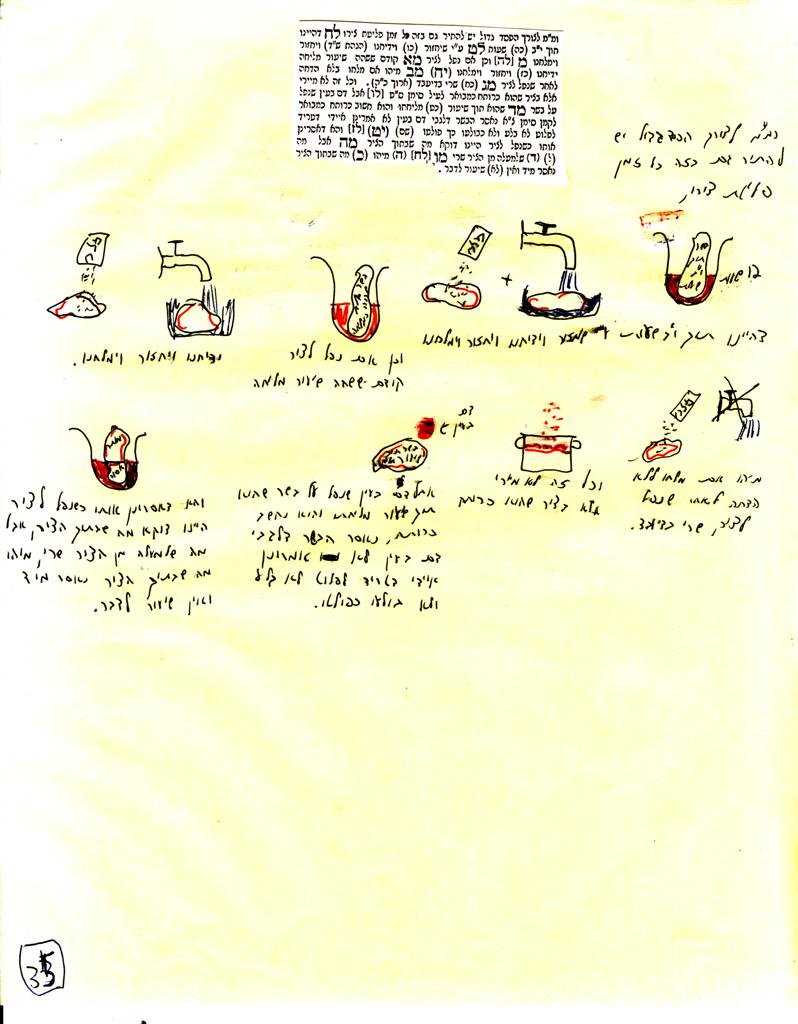 ומ"מ לצורך הפסד גדול יש להתיר גם בזה כל זמן פליטת צירו לח דהיינו
תוך י"ב (כה) שעות לט ע"י שיחזור (כו) וידיחנו (הגהת ש"ד) ויחזור
וימלחנו מ [לה] וכן אם נפל לציר מא קודם ששהה שיעור מליחה
ידיחנו (כז) ויחזור וימלחנו (יח) מב מיהו אם מלחו בלא הדחה
לאחר שנפל לציר מג (כח) שרי בדיעבד (ארוך כ"ה). וכל זה לא מיירי
אלא בציר שהוא כרותח כמבואר לעיל סימן ס"ט [לו] אבל דם בעין שנפל
על בשר מד שהוא תוך שיעור (כט) מליחתו והוא חשוב כרותח כמבואר
לקמן סימן צ"א נאסר הבשר דלגבי דם בעין לא אמרינן איידי דטריד
לפלוט לא בלע ולא כבולעו כך פולטו (שם) (יט) [לז] והא דאסרינן
אותו כשנפל לציר היינו דוקא מה שבתוך הציר מה אבל מה
(ל) (ד) שלמעלה מן הציר שרי מו [לח] (ה) מיהו (כ) מה שבתוך הציר
נאסר מיד ואין (לא) שיעור לדבר.
ומ"מ לצורך הפסד גדול יש
להתיר גם בזה כל זמן
פליטת צירו,
דהיינו תוך י"ב שעות ע"י שיחזור וידיחנו ויחזור וימלחנו
וכן אם נפל לציר
קודם ששהה שיעור מליחה
ידיחנו ויחזור וימלחנו.
מיהו אם מלחו ללא
הדחה לאחר שנפל
לציר, שרי בדיעבד.
וכל זה לא מיירי
אלא בציר שהוא כרותח
דם
בעין
אבל דם בעין שנפל על בשר שהוא
תוך שיעור מליחתו והוא נחשב
כרותח, נאסר הבשר דלגבי
דם בעין לא אמרינן
איידי דטריד לפלוט לא בלע
ולא כבולעו כפולטו.
והא דאסרינן אותו כשנפל לציר
היינו דוקא מה שבתוך הציר, אבל
מה שלמעלה מן הציר שרי, מיהו
מה שבתוך הציר נאסר מיד
ואין שיעור לדבר.